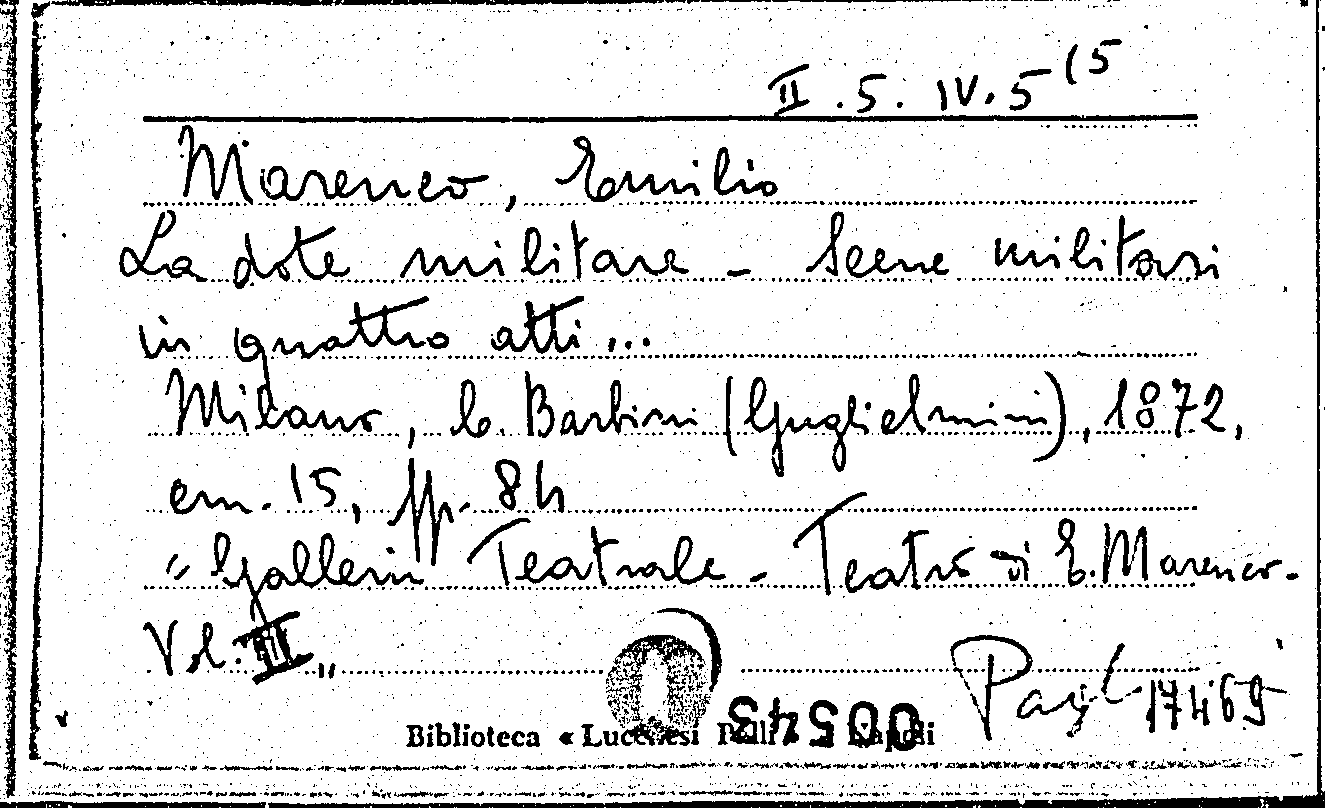 II.5.IV.5(5
Marenco, Emilio
La dote militare - Scene militari
in quattro atti...
Milano, C. Barbini (Guglielmini), 1872,
cm. 15, pp. 84
"Galleria Teatrale - Teatro di E. Marenco -
Vol. III"
17469
00543
Biblioteca « Lucchesi Palli » Napoli